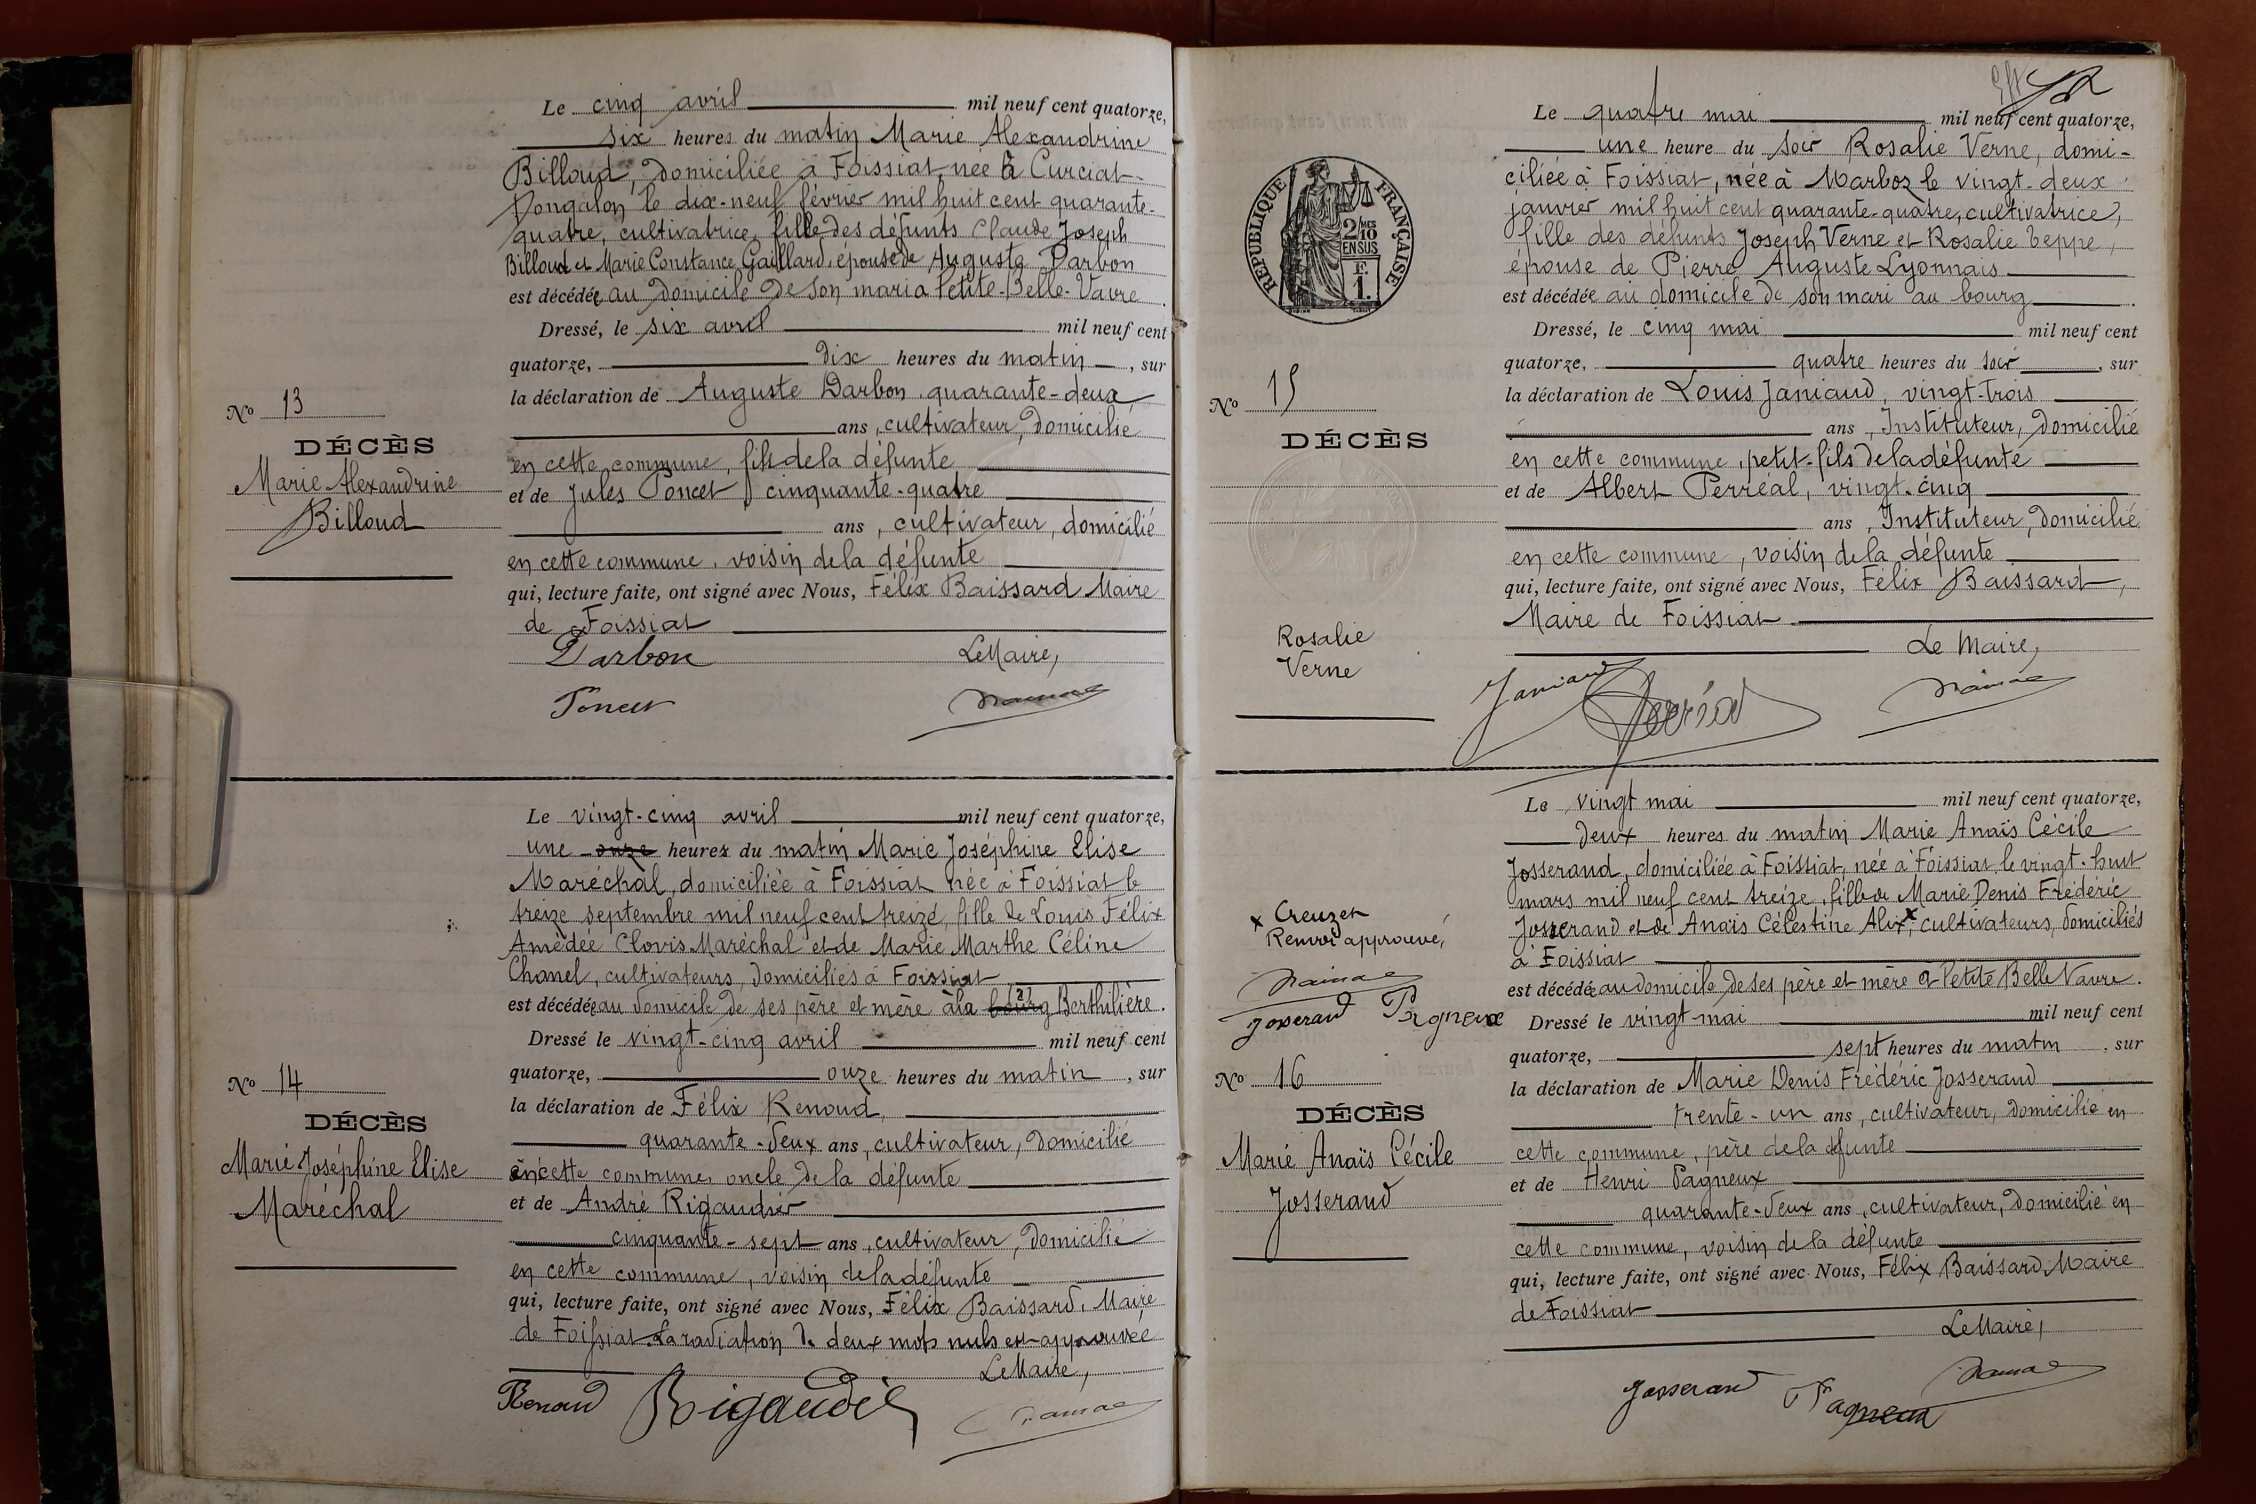 Le cinq avril mil neuf cent quatorze,
six heures du matin Marie Alexandrine
Billoud, domiciliée à Foissiat, née à Curciat-
Dongalon le dix-neuf février mil huit cent quarante-
quatre, cultivatrice, fille des défunts Claude Joseph
Billoud et Marie Constance Gaillard, épouse de Auguste Darbon
est décédée au domicile de son mari à Petite-Belle-Vavre.
Dressé, le six avril mil neuf cent
quatorze, dix heures du matin, sur
la déclaration de Auguste Darbon, quarante-deux
ans, cultivateur, domicilié
en cette commune, fils de la défunte
et de Jules Poncet, cinquante-quatre
ans, cultivateur, domicilié
en cette commune, voisin de la défunte
qui, lecture faite, ont signé avec Nous, Félix Baissard Maire
de Foissiat
Le Maire,
Darbon
Poncet
No 13
DÉCÈS
Marie Alexandrine
Billoud
Le vingt-cinq avril mil neuf cent quatorze,
une onze heures du matin Marie Joséphine Elise
Maréchal, domiciliée à Foissiat née à Foissiat le
treize septembre mil neuf cent treize, fille de Louis Félix
Amédée Clovis Maréchal et de Marie Marthe Céline
Chanel, cultivateurs, domiciliés à Foissiat
est décédée au domicile de ses père et mère à la bourg (2) Berthilière.
Dressé le vingt-cinq avril mil neuf cent
quatorze, onze heures du matin, sur
la déclaration de Félix Renoud,
quarante-deux ans, cultivateur, domicilié
en cette commune, oncle de la défunte
et de André Rigaudier
cinquante-sept ans, cultivateur, domicilié
en cette commune, voisin de la défunte
qui, lecture faite, ont signé avec Nous, Félix Baissard, Maire
de Foissiat. La radiation de deux mots nuls est approuvée
Le Maire,
Renoud Rigaudier
No 14
DÉCÈS
Marie Joséphine Elise
Maréchal
RÉPUBLIQUE FRANÇAISE
2/10 MES
EN SUS
F.
1.
Le quatre mai mil neuf cent quatorze,
une heure du soir Rosalie Verne, domi-
ciliée à Foissiat, née à Marboz le vingt-deux
janvier mil huit cent quarante-quatre, cultivatrice,
fille des défunts Joseph Verne et Rosalie Teppe,
épouse de Pierre Auguste Lyonnais
est décédée au domicile de son mari au bourg
Dressé, le cinq mai mil neuf cent
quatorze, quatre heures du soir, sur
la déclaration de Louis Janiaud, vingt-trois
ans, Instituteur, domicilié
en cette commune, petit-fils de la défunte
et de Albert Perréal, vingt-cinq
ans, Instituteur, domicilié
en cette commune, voisin de la défunte
qui, lecture faite, ont signé avec Nous, Félix Baissard,
Maire de Foissiat
Le Maire,
Janiaud Perréal
No 15
DÉCÈS
Rosalie
Verne
Le vingt mai mil neuf cent quatorze,
deux heures du matin Marie Anaïs Cécile
Josserand, domiciliée à Foissiat, née à Foissiat le vingt-huit
mars mil neuf cent treize, fille de Marie Denis Frédéric
Josserand et de Anaïs Célestine Alix x, cultivateurs, domiciliés
à Foissiat
est décédée au domicile de ses père et mère à Petite Belle Vavre.
Dressé le vingt mai mil neuf cent
quatorze, sept heures du matin, sur
la déclaration de Marie Denis Frédéric Josserand
trente-un ans, cultivateur, domicilié en
cette commune, père de la défunte
et de Henri Pagneux
quarante-deux ans, cultivateur, domicilié en
cette commune, voisin de la défunte
qui, lecture faite, ont signé avec Nous, Félix Baissard, Maire
de Foissiat
Le Maire,
Josserand Pagneux
x Creuzet
Renvoi approuvé,
Josserand Pagneux
No 16
DÉCÈS
Marie Anaïs Cécile
Josserand